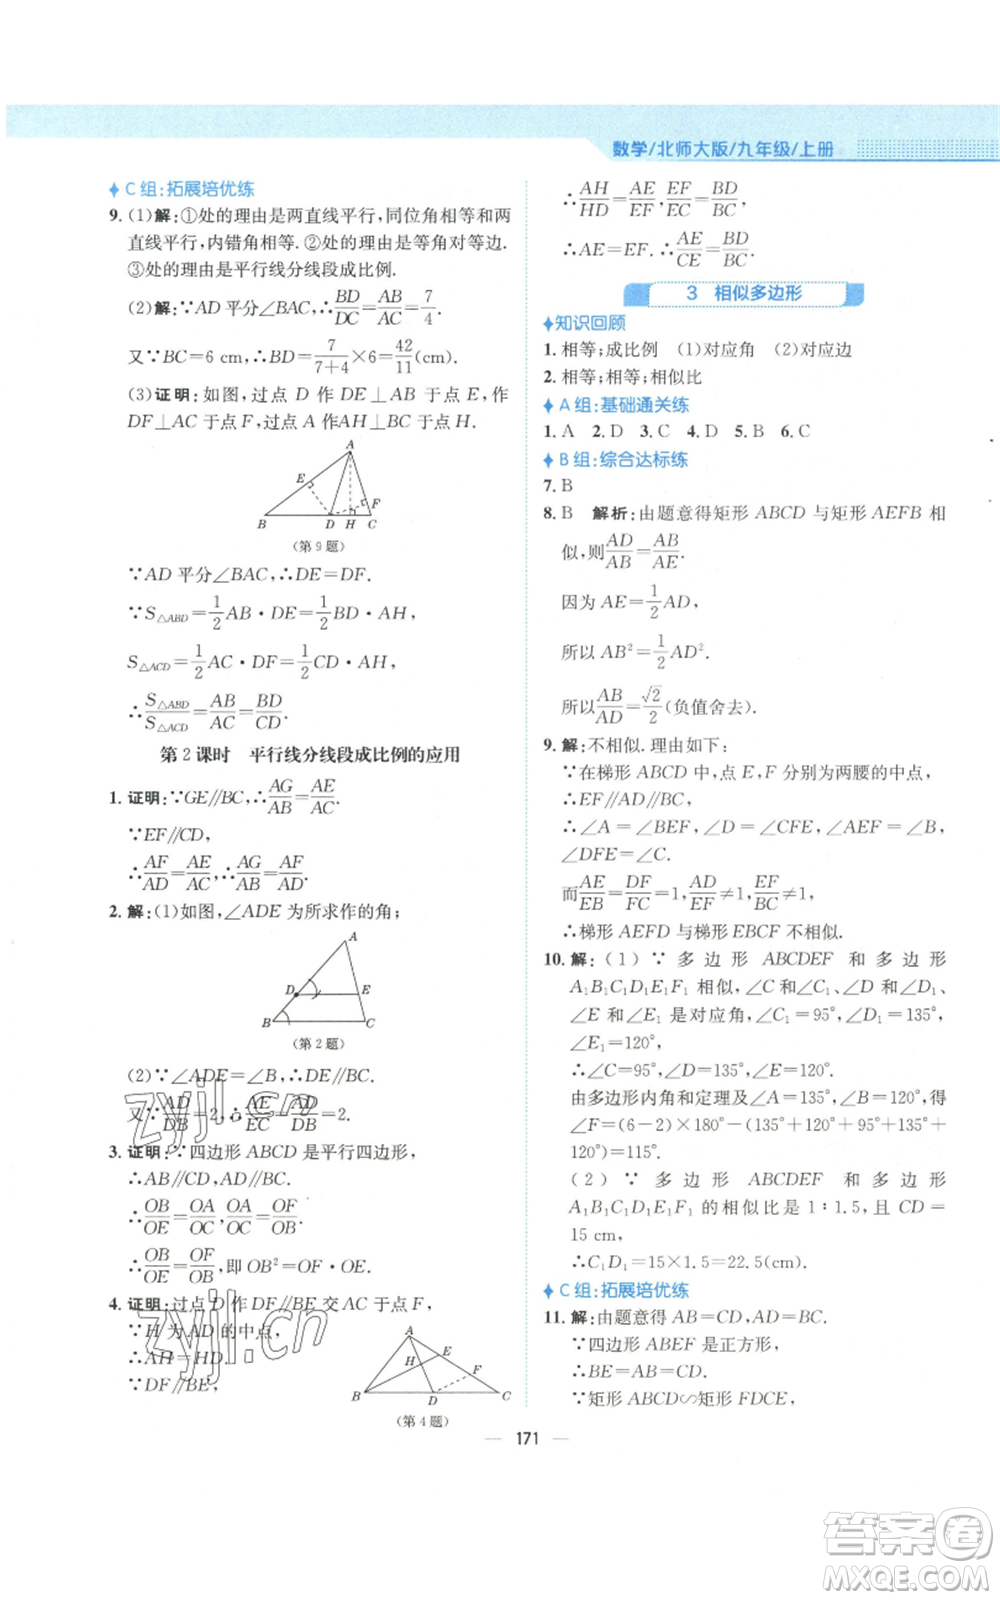 数学/北师大版/九年级/上册
C组:拓展培优练
9. (1)解:①处的理由是两直线平行,同位角相等和两
直线平行,内错角相等.②处的理由是等角对等边.
③处的理由是平行线分线段成比例.
(2)解:∵AD平分∠BAC,∴BD/DC=AB/AC=7/4.
又∵BC=6 cm,∴BD=7/(7+4)×6=42/11(cm).
(3)证明:如图,过点 D 作 DE⊥AB 于点 E,作
DF⊥AC于点F,过点A作AH⊥BC于点H.
A
E
F
B D H C
(第9题)
∵AD平分∠BAC,∴DE=DF.
∵S△ABD=1/2AB·DE=1/2BD·AH,
S△ACD=1/2AC·DF=1/2CD·AH,
∴S△ABD/S△ACD=AB/AC=BD/CD.
第2课时 平行线分线段成比例的应用
1. 证明:∵GE//BC,∴AG/AB=AE/AC.
∵EF//CD,
∴AF/AD=AE/AC,∴AG/AB=AF/AD.
2. 解:(1)如图,∠ADE为所求作的角;
A
D E
B C
(第2题)
(2)∵∠ADE=∠B,∴DE//BC.
又∵AD/DB=2,∴AE/EC=AD/DB=2.
3. 证明:∵四边形ABCD是平行四边形,
∴AB//CD,AD//BC.
∴OB/OE=OA/OC,OA/OC=OF/OB.
∴OB/OE=OF/OB,即OB²=OE·OF.
4. 证明:过点D作DF//BE交AC于点F,
∵H为AD的中点,
∴AH=HD.
∵DF//BE,
A
H E
F
B D C
(第4题)
∴AH/HD=AE/EF,EF/EC=BD/BC.
∴AE=EF.∴AE/CE=BD/BC.
3 相似多边形
知识回顾
1. 相等;成比例 (1)对应角 (2)对应边
2. 相等;相等;相似比
A组:基础通关练
1. A 2. D 3. C 4. D 5. B 6. C
B组:综合达标练
7. B
8. B 解析:由题意得矩形ABCD与矩形AEFB相
似,则AD/AB=AB/AE.
因为AE=1/2AD,
所以AB²=1/2AD².
所以AB/AD=√2/2(负值舍去).
9. 解:不相似.理由如下:
∵在梯形ABCD中,点E,F分别为两腰的中点,
∴EF//AD//BC.
∴∠A=∠BEF,∠D=∠CFE,∠AEF=∠B,
∠DFE=∠C.
而AE/EB=DF/FC=1,AD/EF≠1,EF/BC≠1,
∴梯形AEFD与梯形EBCF不相似.
10. 解:(1)∵多边形 ABCDEF 和多边形
A₁B₁C₁D₁E₁F₁相似,∠C和∠C₁、∠D和∠D₁、
∠E和∠E₁是对应角,∠C₁=95°,∠D₁=135°,
∠E₁=120°,
∴∠C=95°,∠D=135°,∠E=120°.
由多边形内角和定理及∠A=135°,∠B=120°,得
∠F=(6-2)×180°-(135°+120°+95°+135°+
120°)=115°.
(2)∵多边形 ABCDEF 和多边形
A₁B₁C₁D₁E₁F₁的相似比是1:1.5,且CD=
15 cm,
∴C₁D₁=15×1.5=22.5(cm).
C组:拓展培优练
11. 解:由题意得AB=CD,AD=BC.
∵四边形ABEF是正方形,
∴BE=AB=CD.
∵矩形ABCD∽矩形FDCE,
171
zyjl.cn
zyjl.cn
答案圈
MXQE.COM